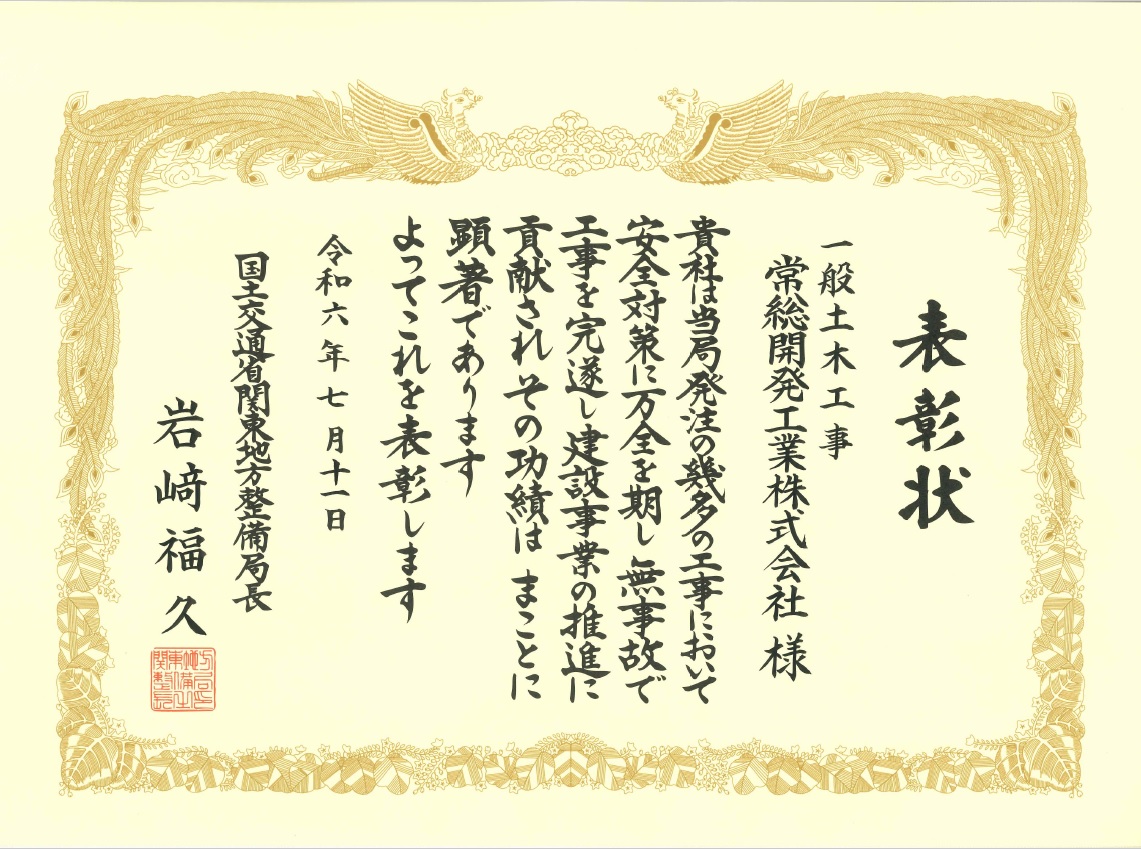 表彰状
一般土木工事
常総開発工業株式会社 様
貴社は当局発注の幾多の工事において
安全対策に万全を期し 無事故で
工事を完遂し建設事業の推進に
貢献され その功績は まことに
顕著であります
よってこれを表彰します
令和六年七月十一日
国土交通省関東地方整備局長
岩﨑福久